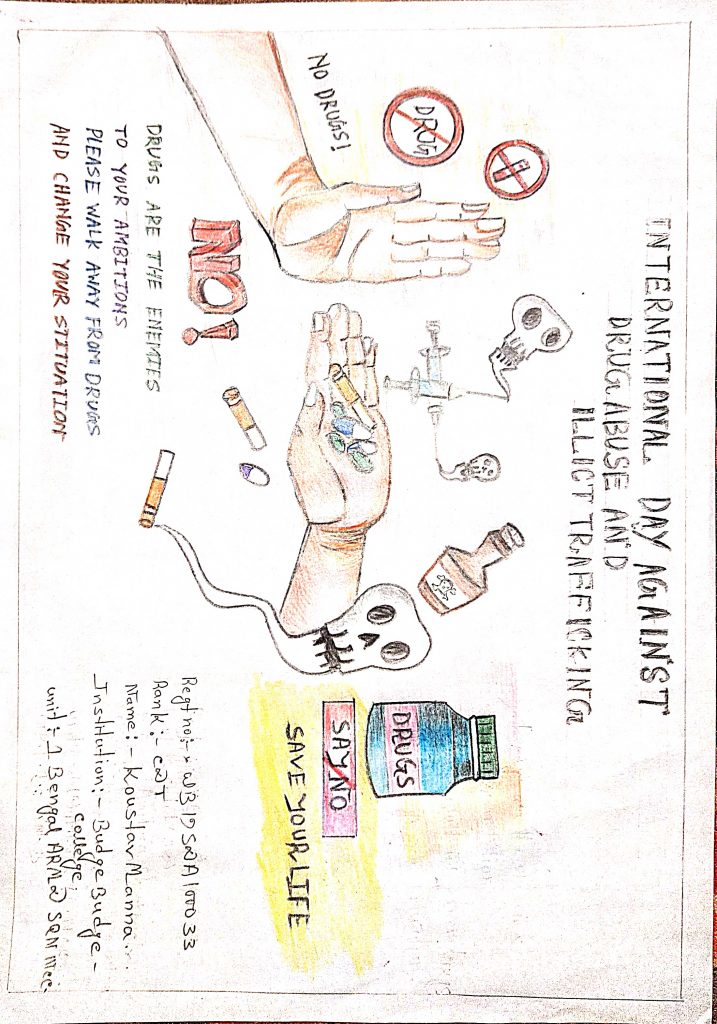 INTERNATIONAL DAY AGAINST
DRUG ABUSE AND
ILLICT TRAFFICKING
DRUG
NO DRUGS!
NO!
DRUGS
SAY NO
SAVE YOUR LIFE
DRUGS ARE THE ENEMIES
TO YOUR AMBITIONS
PLEASE WALK AWAY FROM DRUGS
AND CHANGE YOUR STITUATION
Regt no:- WB19SDA100033
Rank:- CDT
Name:- Koustav Manna
Institution:- Budge Budge-
College,
unit:- 1 Bengal ARMD SQN NCC.